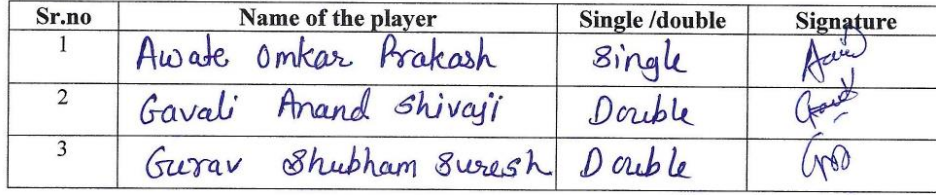 Sr.no Name of the player Single /double Signature
1 Awate Omkar Prakash Single
2 Gavali Anand Shivaji Double
3 Gurav Shubham Suresh Double